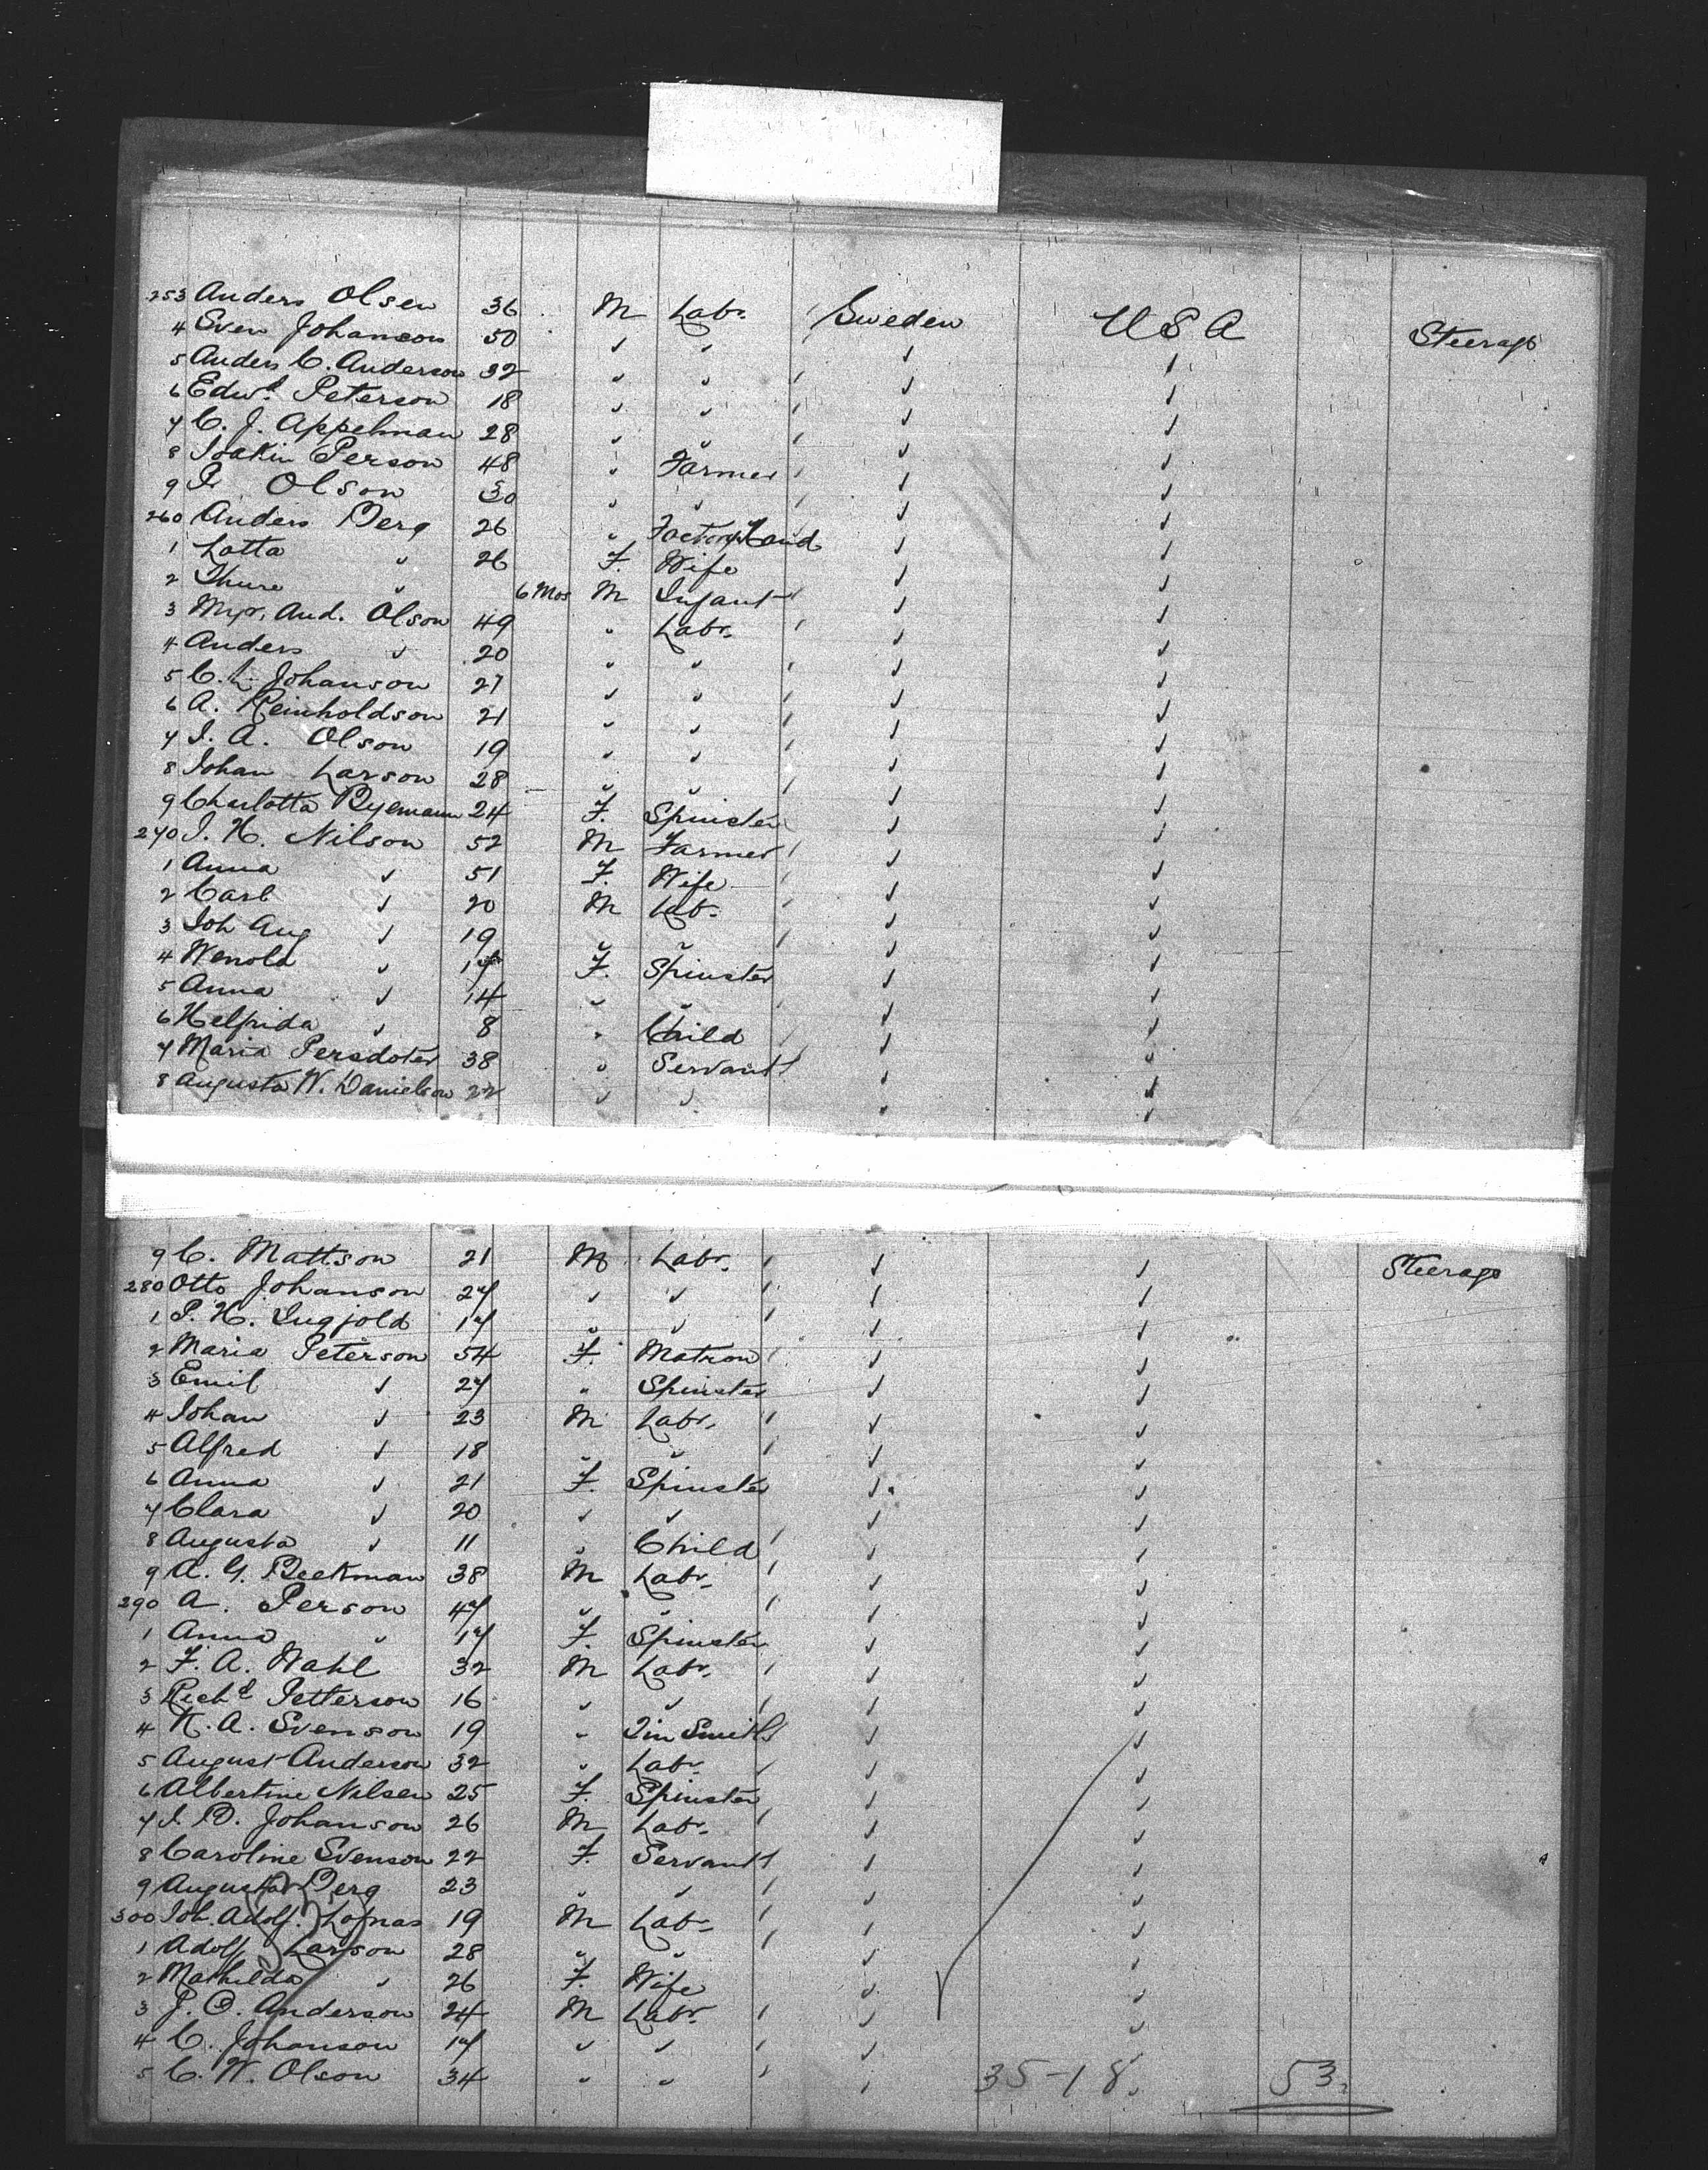 253 Anders Olsen 36 M Labr. Sweden USA Steerage
4 Sven Johanson 50 " " " "
5 Anders C. Anderson 32 " " " "
6 Edwd. Peterson 18 " " " "
7 C. J. Appelman 28 " " " "
8 Joakin Person 48 " Farmer " "
9 P. Olson 30 " " " "
260 Anders Berg 26 " Factory Hand " "
1 Lotta " 26 F. Wife " "
2 Thure " 6 Mos M Infant " "
3 And. Olson 49 " Labr. " "
4 Anders " 20 " " " "
5 C. L. Johanson 27 " " " "
6 A. Reinholdson 21 " " " "
7 J. A. Olson 19 " " " "
8 Johan Larson 28 " " " "
9 Charlotta Ryemann 24 F. Spinster " "
270 J. H. Nilson 52 M Farmer " "
1 Anna " 51 F. Wife " "
2 Carl " 20 M Lab. " "
3 Joh Aug " 19 " " " "
4 Wenola " 17 F. Spinster " "
5 Anna " 14 " " " "
6 Helfrida " 8 " Child " "
7 Maria Persdoter 38 " Servant " "
8 Augusta W. Danielson 22 " " " "
9 C. Mattson 21 M Labr. " " Steerage
280 Otto Johanson 27 " " " "
1 P. H. Ingjold 17 " " " "
2 Maria Peterson 54 F. Matron " "
3 Emil " 27 " Spinster " "
4 Johan " 23 M Labr. " "
5 Alfred " 18 " " " "
6 Anna " 21 F. Spinster " "
7 Clara " 20 " " " "
8 Augusta " 11 " Child " "
9 A. G. Beckman 38 M Labr. " "
290 A. Person 47 " " " "
1 Anna " 17 F. Spinster " "
2 F. A. Wahl 32 M Labr. " "
3 Richd Petterson 16 " " " "
4 K. A. Svenson 19 " Tin Smith " "
5 August Anderson 32 " Labr. " "
6 Albertine Nilsen 25 F. Spinster " "
7 J. B. Johanson 26 M Labr. " "
8 Caroline Svenson 22 F. Servant " "
9 Augusta Berg 23 " " " "
300 Joh. Adolf. Lofnas 19 M Labr. " "
1 Adolf Larson 28 " " " "
2 Mathilda " 26 F. Wife " "
3 J. O. Anderson 24 M Labr. " "
4 C. Johanson 17 " " " "
5 C. W. Olson 34 " " " 35-18. 53